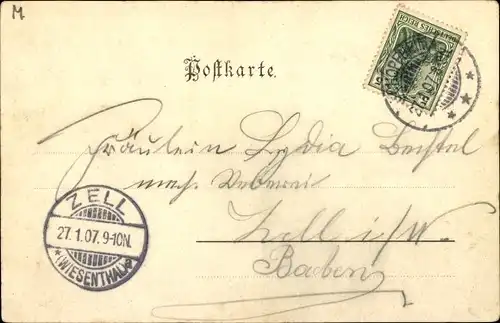 M
Postkarte.
DEUTSCHES REICH
Fräulein Lydia Bechtel
mech. Weberei
Zell i/W.
Baden
ZELL
27.1.07. 9-10N.
* (WIESENTHAL) *